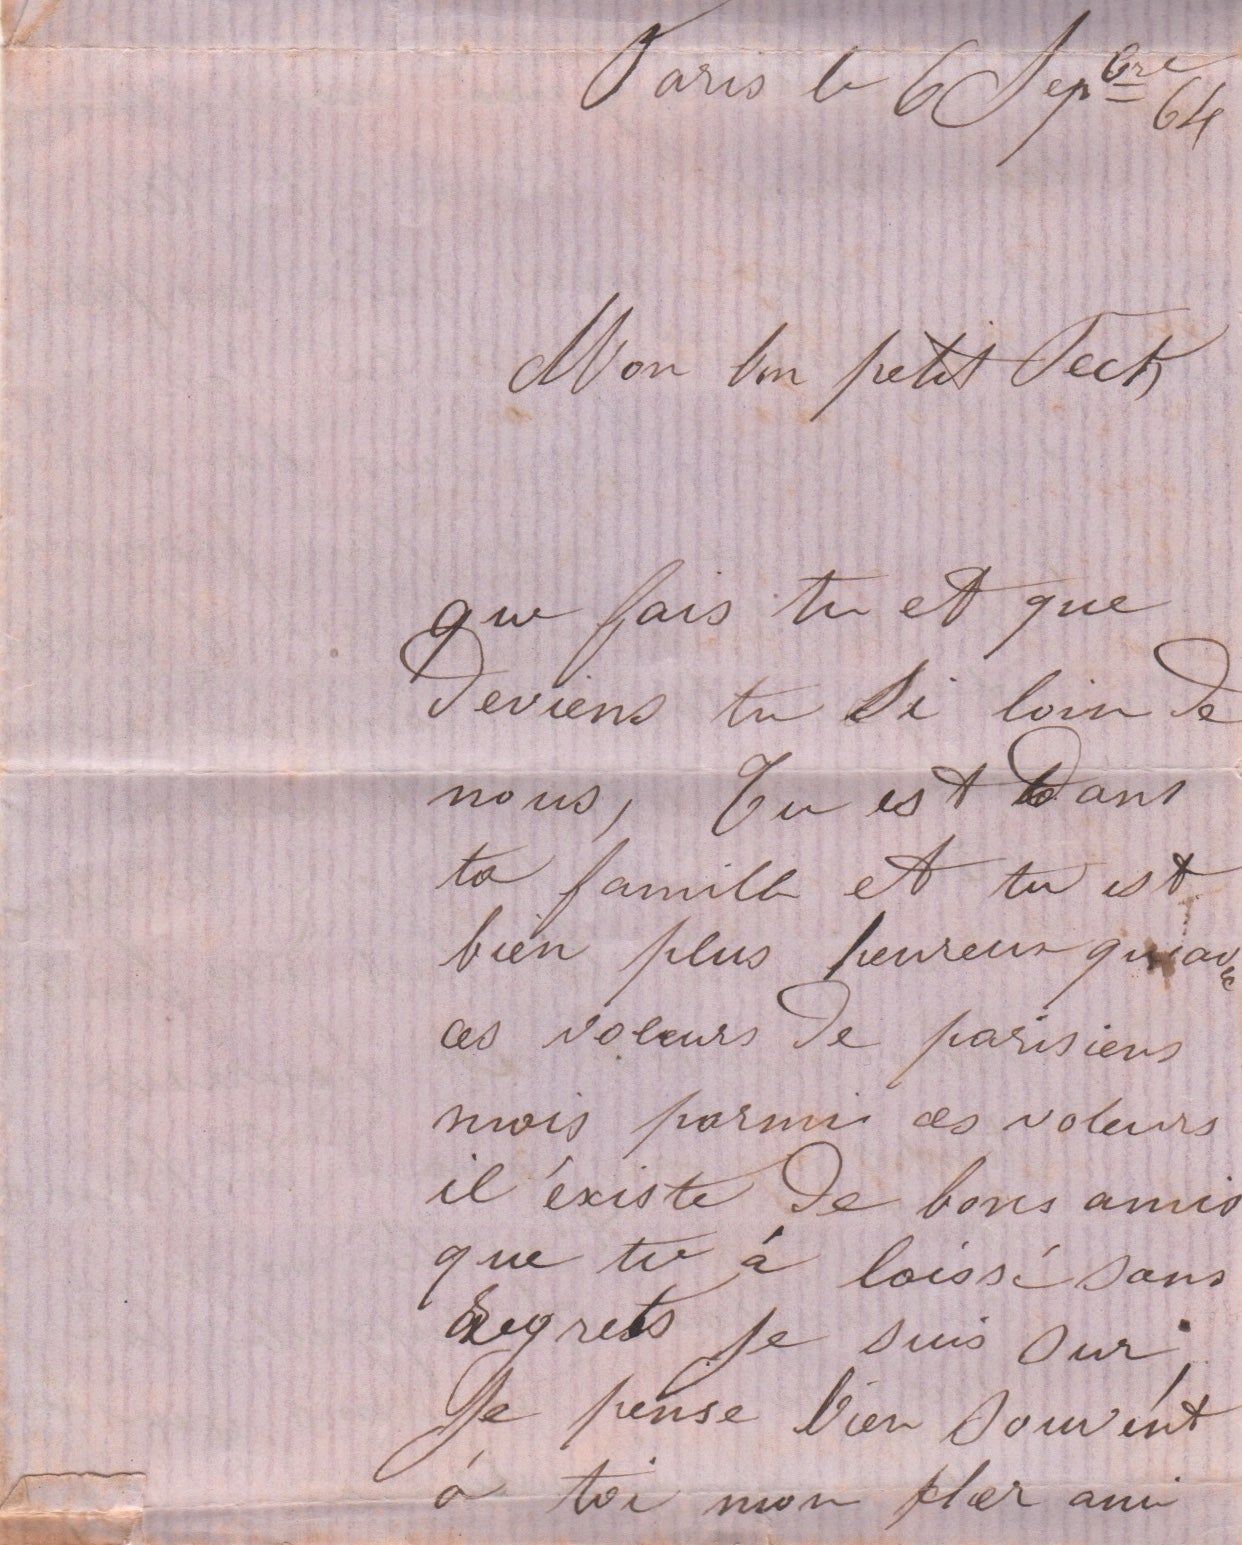 Paris le 6 Sepbre 64
Mon bon petit Teck
que fais tu et que
deviens tu si loin de
nous, Tu est dans
ta famille et tu est
bien plus heureux qu'avec
ces voleurs de parisiens
mais parmi ces voleurs
il éxiste de bons amis
que tu á laissé sans
regrets je suis sur,
Je pense bien souvent
á toi mon cher ami